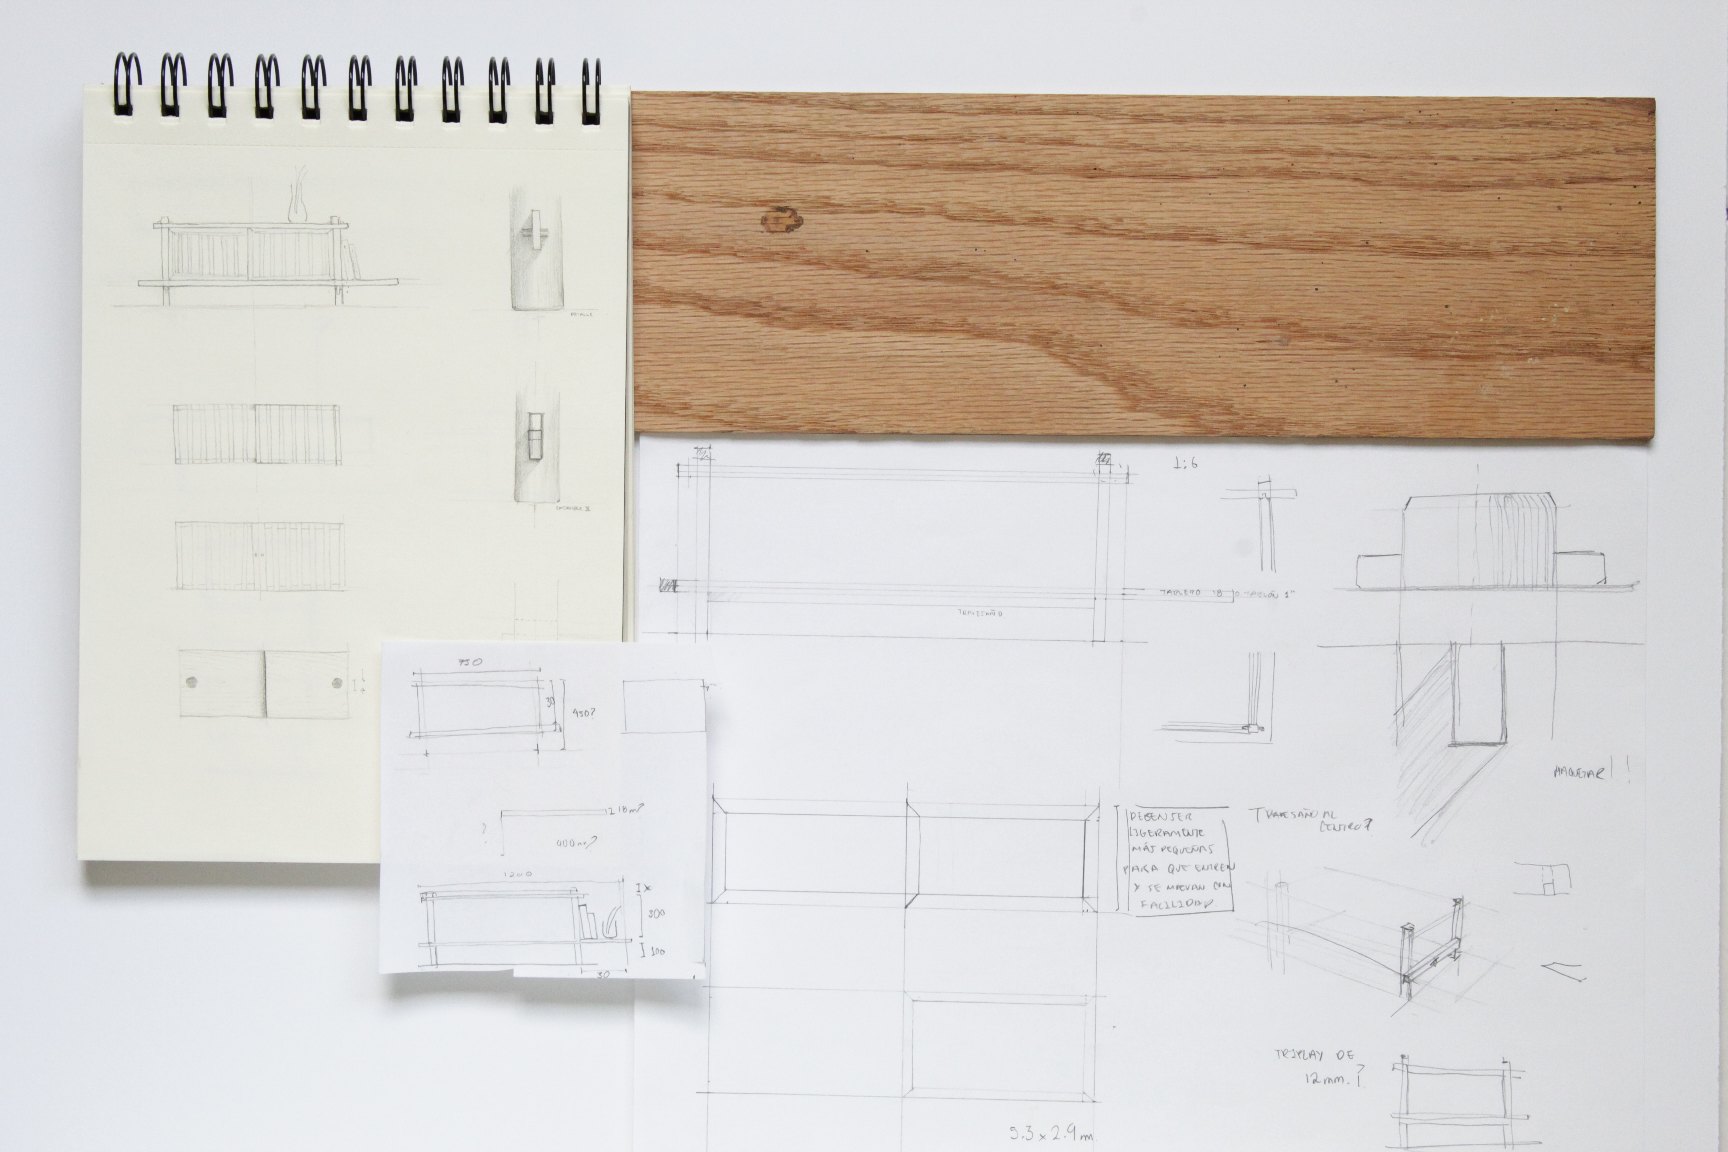 DETALLE
750
30
450?
1218m?
400m?
1200
x
300
100
30
1:6
TABLERO 18 O TABLÓN 1"
TRAVESAÑO
MAQUETAR!!
DEBEN SER
LIGERAMENTE
MÁS PEQUEÑAS
PARA QUE ENTREN
Y SE MUEVAN CON
FACILIDAD
TRAVESAÑO AL
CENTRO?
TRIPLAY DE
12mm.?
5.3 x 2.9 m.